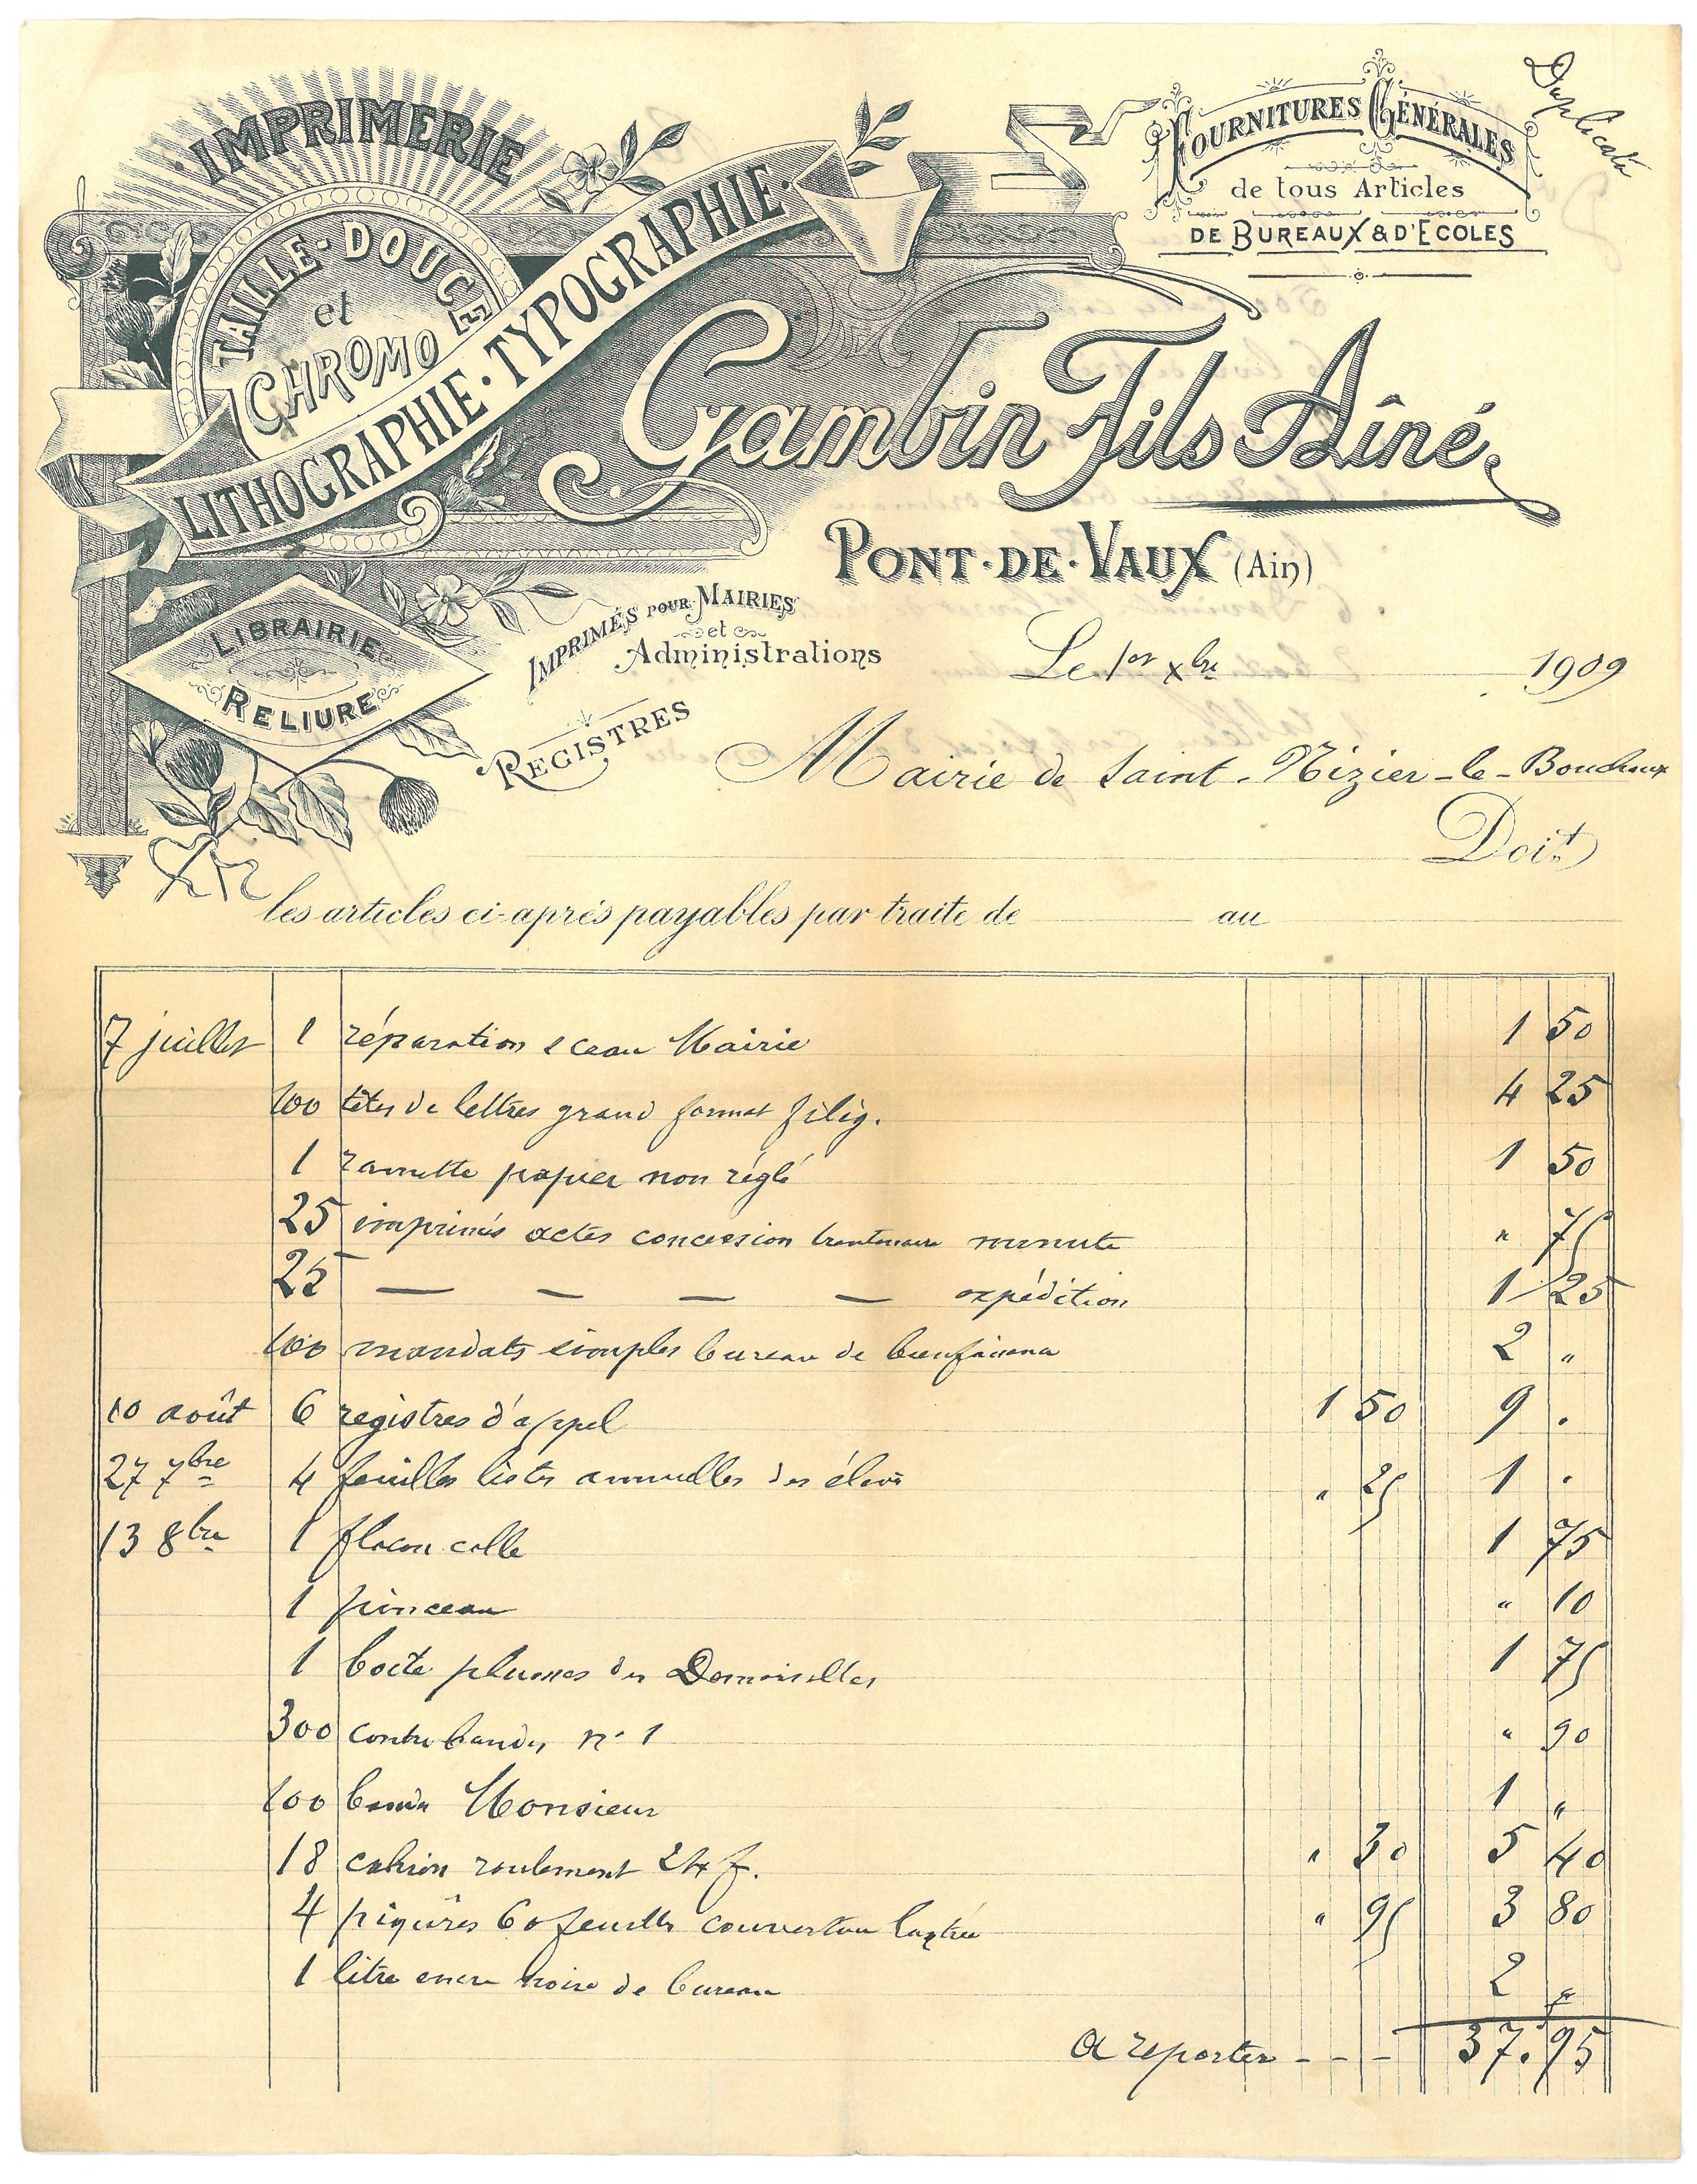 Duplicata
IMPRIMERIE
TAILLE-DOUCE
et
CHROMO
LITHOGRAPHIE · TYPOGRAPHIE
FOURNITURES GÉNÉRALES
de tous Articles
DE BUREAUX & D'ECOLES
Gambin Fils Aîné
PONT-DE-VAUX (Ain)
LIBRAIRIE
RELIURE
IMPRIMÉS POUR MAIRIES
et
Administrations
REGISTRES
Le 1er Xbre 1909
Mairie de Saint-Nizier-le-Bouchoux
Doit
les articles ci-après payables par traite de au
7 juillet 1 réparation sceau Mairie 1 50
100 têtes de lettres grand format filig. 4 25
1 ramette papier non réglé 1 50
25 imprimés actes concession trentenaire minute " 75
25 — — — — expédition 1 25
100 mandats simples bureau de bienfaisance 2 "
10 août 6 registres d'appel 1 50 9 .
27 7bre 4 feuilles listes annuelles des élèves " 25 1 .
13 8bre 1 flacon colle 1 75
1 pinceau " 10
1 boîte plumes des Demoiselles 1 75
300 contre bandes n° 1 " 90
100 bandes Monsieur 1 "
18 cahiers roulement 24 f. " 30 5 40
4 piqûres 60 feuilles couverture " 95 3 80
1 litre encre noire de bureau 2 "
A reporter - - - 37.95